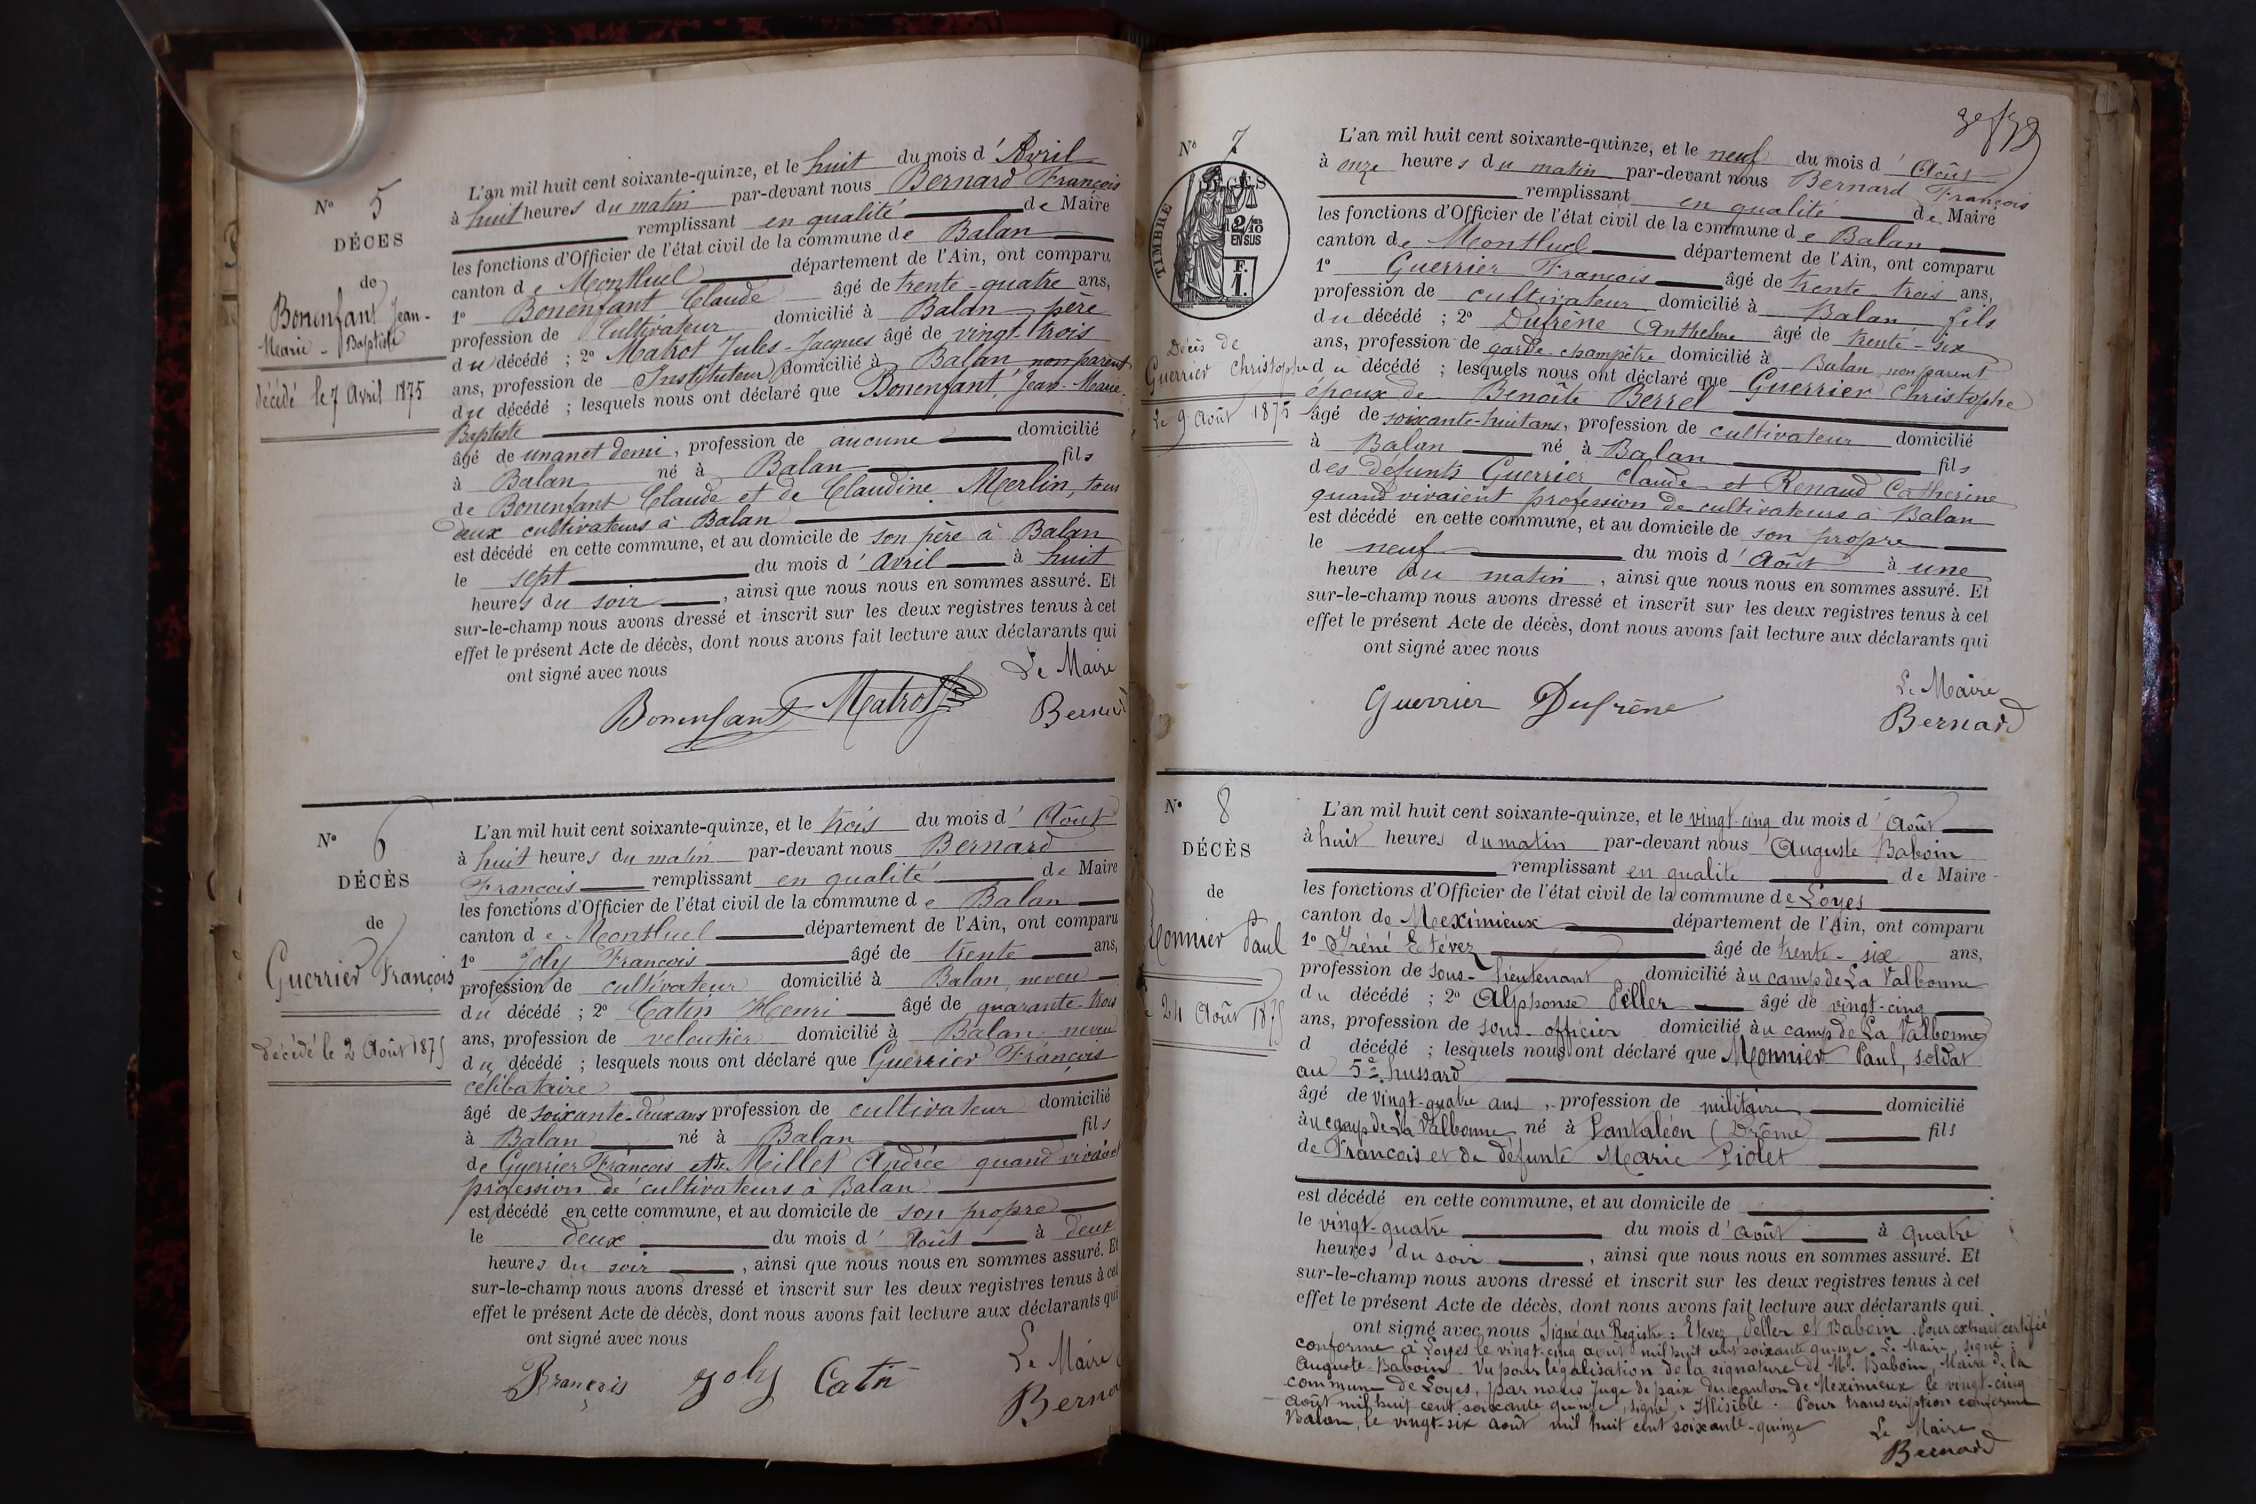 N° 5
DÉCES
de
Bonenfant Jean-
Marie-Baptiste
décédé le 7 Avril 1875
L'an mil huit cent soixante-quinze, et le huit du mois d'Avril
à huit heures du matin par-devant nous Bernard François
remplissant en qualité de Maire
les fonctions d'Officier de l'état civil de la commune de Balan
canton de Montluel département de l'Ain, ont comparu
1° Bonenfant Claude âgé de trente-quatre ans,
profession de Cultivateur domicilié à Balan père
du décédé ; 2° Matrot Jules-Jacques âgé de vingt-trois
ans, profession de Instituteur domicilié à Balan non parent
du décédé ; lesquels nous ont déclaré que Bonenfant, Jean-Marie-
Baptiste
âgé de un an et demi, profession de aucune domicilié
à Balan né à Balan fils
de Bonenfant Claude et de Claudine Merlin, tous
deux cultivateurs à Balan
est décédé en cette commune, et au domicile de son père à Balan
le sept du mois d'Avril à huit
heures du soir, ainsi que nous nous en sommes assuré. Et
sur-le-champ nous avons dressé et inscrit sur les deux registres tenus à cet
effet le présent Acte de décès, dont nous avons fait lecture aux déclarants qui
ont signé avec nous
Le Maire
Bonenfant Matrot Bernard
N° 6
DÉCÈS
de
Guerrier François
décédé le 2 Août 1875
L'an mil huit cent soixante-quinze, et le trois du mois d'Août
à huit heures du matin par-devant nous Bernard
François remplissant en qualité de Maire
les fonctions d'Officier de l'état civil de la commune de Balan
canton de Montluel département de l'Ain, ont comparu
1° Joly François âgé de trente ans,
profession de cultivateur domicilié à Balan, neveu
du décédé ; 2° Catin Henri âgé de quarante-trois
ans, profession de veloutier domicilié à Balan neveu
du décédé ; lesquels nous ont déclaré que Guerrier François
célibataire
âgé de soixante-deux ans profession de cultivateur domicilié
à Balan né à Balan fils
de Guerrier François et de Millet Andrée quand vivaient
profession de cultivateurs à Balan
est décédé en cette commune, et au domicile de son propre
le deux du mois d'Août à deux
heures du soir, ainsi que nous nous en sommes assuré. Et
sur-le-champ nous avons dressé et inscrit sur les deux registres tenus à cet
effet le présent Acte de décès, dont nous avons fait lecture aux déclarants qui
ont signé avec nous
Le Maire
François Joly Catin
N° 7
TIMBRE
2/10
EN SUS
F.
1.
Décès de
Guerrier Christophe
Le 9 Août 1875
L'an mil huit cent soixante-quinze, et le neuf du mois d'Août
à onze heures du matin par-devant nous Bernard François
remplissant en qualité de Maire
les fonctions d'Officier de l'état civil de la commune de Balan
canton de Montluel département de l'Ain, ont comparu
1° Guerrier François âgé de trente trois ans,
profession de cultivateur domicilié à Balan fils
du décédé ; 2° Dufrène Anthelme âgé de trente-six
ans, profession de garde-champêtre domicilié à Balan non parent
du décédé ; lesquels nous ont déclaré que Guerrier Christophe
époux de Benoîte Berrel
âgé de soixante-huit ans, profession de cultivateur domicilié
à Balan né à Balan fils
des défunts Guerrier Claude et Renaud Catherine
quand vivaient profession de cultivateurs à Balan
est décédé en cette commune, et au domicile de son propre
le neuf du mois d'Août à une
heure du matin, ainsi que nous nous en sommes assuré. Et
sur-le-champ nous avons dressé et inscrit sur les deux registres tenus à cet
effet le présent Acte de décès, dont nous avons fait lecture aux déclarants qui
ont signé avec nous
Le Maire
Guerrier Dufrène Bernard
N° 8
DÉCÈS
de
Monnier Paul
24 Août 1875
L'an mil huit cent soixante-quinze, et le vingt-cinq du mois d'Août
à huit heures du matin par-devant nous Auguste Baboin
remplissant en qualité de Maire
les fonctions d'Officier de l'état civil de la commune de Loyes
canton de Meximieux département de l'Ain, ont comparu
1° Iréné Etévez âgé de trente-six ans,
profession de sous-lieutenant domicilié au camp de La Valbonne
du décédé ; 2° Alphonse Peller âgé de vingt-cinq
ans, profession de sous-officier domicilié au camp de La Valbonne
d décédé ; lesquels nous ont déclaré que Monnier Paul, soldat
au 5e hussard
âgé de vingt-quatre ans, profession de militaire domicilié
au camp de La Valbonne né à Pantaléon (Drôme) fils
de François et de défunte Marie Piolet
est décédé en cette commune, et au domicile de
le vingt-quatre du mois d'Août à quatre
heures du soir, ainsi que nous nous en sommes assuré. Et
sur-le-champ nous avons dressé et inscrit sur les deux registres tenus à cet
effet le présent Acte de décès, dont nous avons fait lecture aux déclarants qui
ont signé avec nous Signé au Registre : Etevez, Peller et Baboin. Pour extrait certifié
conforme à Loyes le vingt-cinq août mil huit cent soixante quinze. Le Maire, signé :
Auguste Baboin. Vu pour légalisation de la signature de Mr. Baboin, Maire de la
commune de Loyes, par nous Juge de paix du canton de Meximieux le vingt-cinq
Août mil huit cent soixante quinze, signé : Illisible. Pour transcription conforme
Balan, le vingt-six août mil huit cent soixante-quinze
Le Maire
Bernard